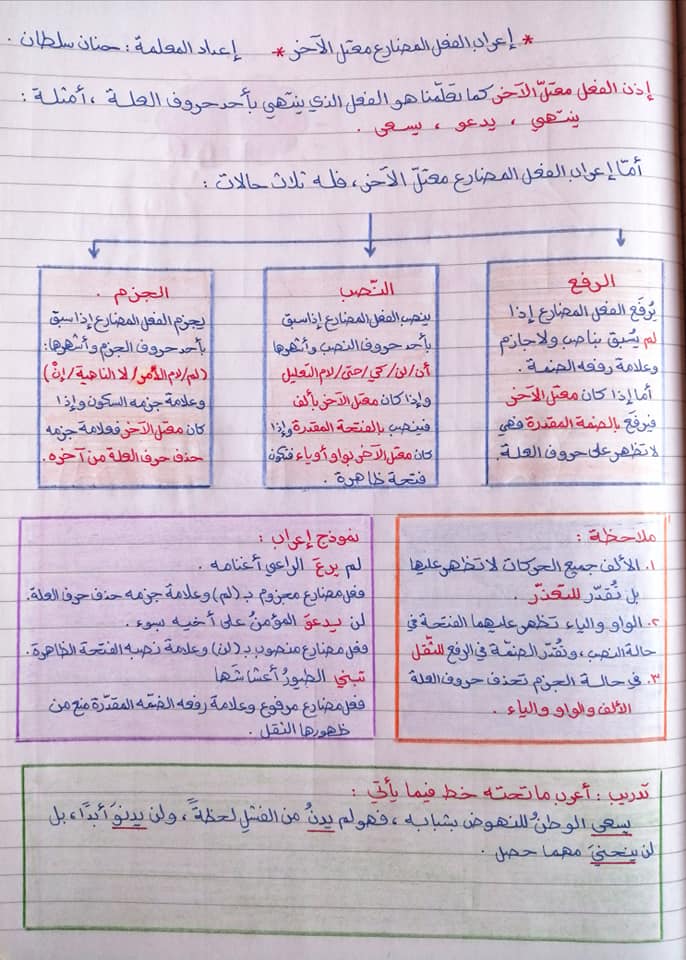 * إعراب الفعل المضارع معتل الآخر * إعداد المعلمة : حنان سلطان .
إذن الفعل معتلّ الآخر كما تعلّمنا هو الفعل الذي ينتهي بأحد حروف العلة ، أمثلة :
ينتهي ، يدعو ، يسعى .
أمّا إعراب الفعل المضارع معتلّ الآخر ، فله ثلاث حالات :
الرفع
يُرفَع الفعل المضارع إذا
لم يُسبق بناصب ولا جازم
وعلامة رفعه الضمة .
أما إذا كان معتل الآخر
فيرفع بالضمة المقدرة فهي
لا تظهر على حروف العلة .
النّصب
ينصب الفعل المضارع إذا سبق
بأحد حروف النصب وأشهرها
أن / لن / كي / حتى / لام التعليل
وإذا كان معتل الآخر بألف
فينصب بالفتحة المقدرة وإذا
كان معتل الآخر بواو أو ياء فتكون
فتحة ظاهرة .
الجزم .
يجزم الفعل المضارع إذا سبق
بأحد حروف الجزم وأشهرها :
(لم / لام الأمر / لا الناهية / إنْ)
وعلامة جزمه السكون وإذا
كان معتل الآخر فعلامة جزمه
حذف حرف العلة من آخره .
ملاحظة :
١. الألف جميع الحركات لا تظهر عليها
بل تُقدّر للتعذّر .
٢. الواو والياء تظهر عليهما الفتحة في
حالة النصب ، وتُقدّر الضمّة في الرفع للثّقل
٣. في حالة الجزم تحذف حروف العلة
الألف والواو والياء .
نموذج إعراب :
لم يرعَ الراعي أغنامه .
فعل مضارع مجزوم بـ (لم) وعلامة جزمه حذف حرف العلة .
لن يدعوَ المؤمنُ على أخيه بسوء .
فعل مضارع منصوب بـ (لن) وعلامة نصبه الفتحة الظاهرة .
تبني الطيورُ أعشاشَها
فعل مضارع مرفوع وعلامة رفعه الضمّه المقدّرة منع من
ظهورها الثقل .
تدريب : أعرب ما تحته خط فيما يأتي :
يسعى الوطنُ للنهوض بشبابه ، فهو لم يدنُ من الفشلِ لحظةً ، ولن يدنوَ أبدًا ، بل
لن ينحنيَ مهما حصل .